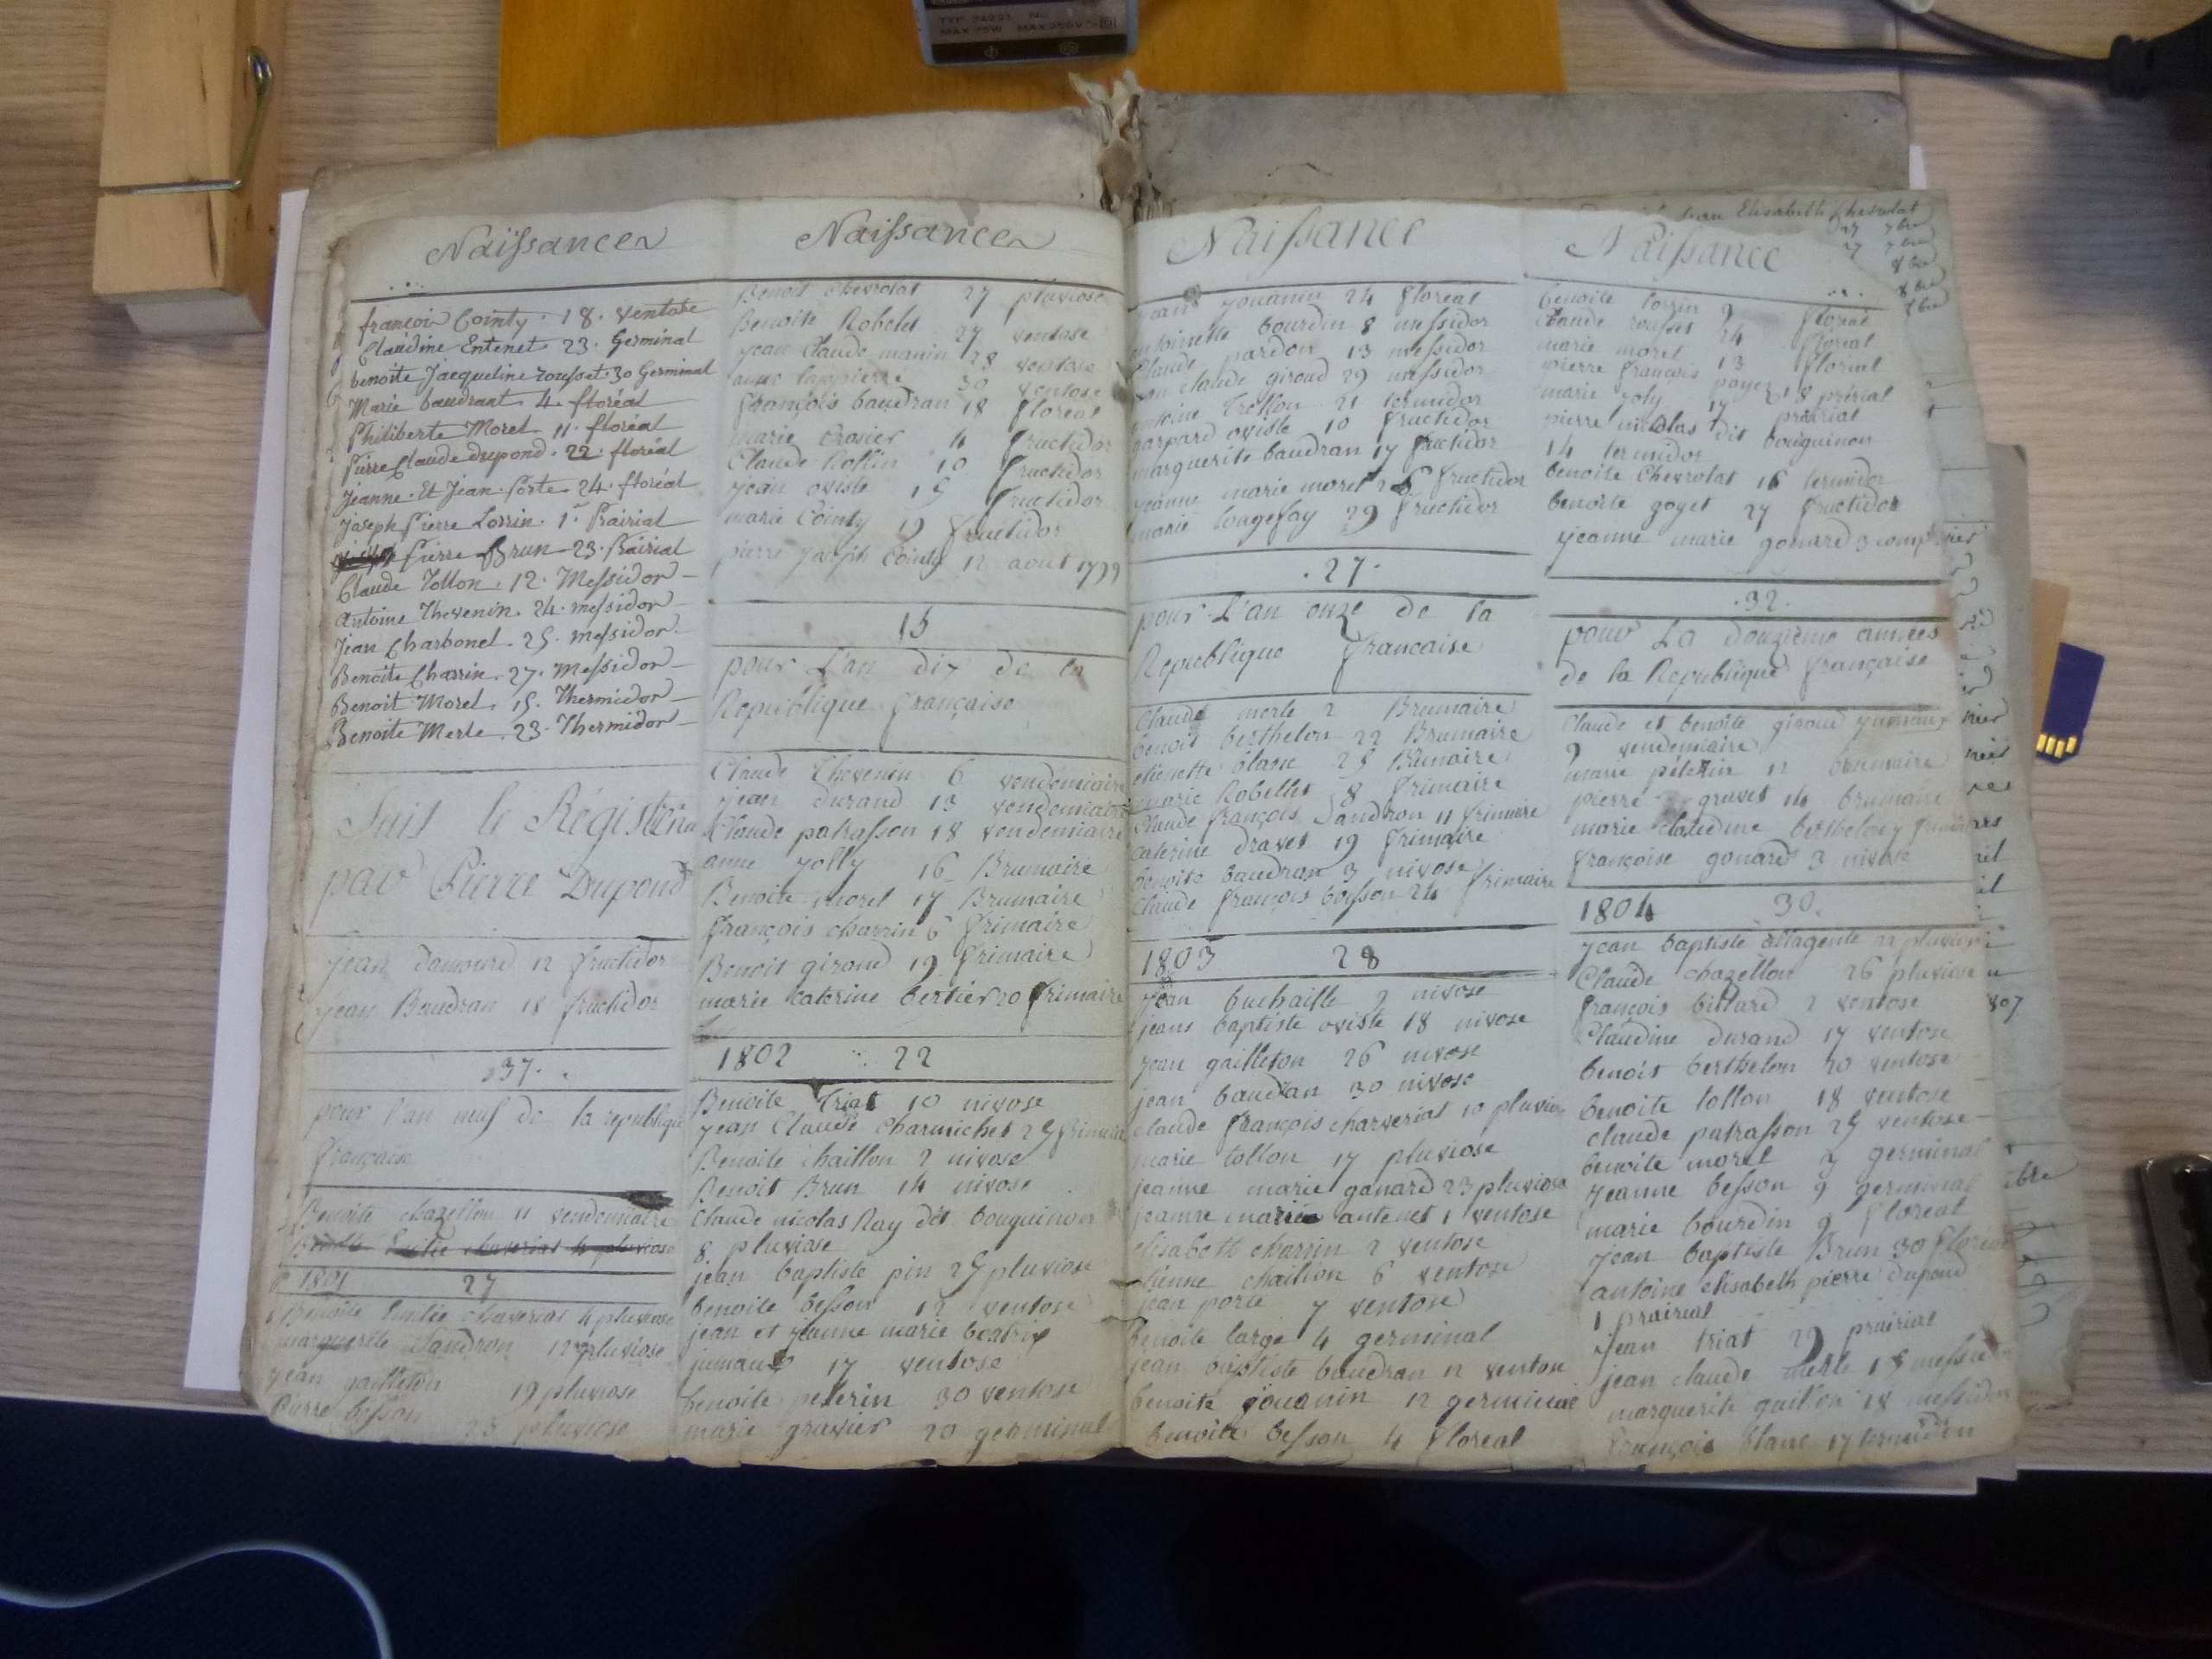 Naissances
françois Cointy . 18 . Ventose
Claudine Entenet . 23 . Germinal
benoite Jacqueline rousset . 30 Germinal
Marie baudrant . 4 . floréal
Philiberte Morel . 11 . floréal
Pierre Claude dupond . 22 . floréal
Jeanne . Et Jean . Porte . 24 . floréal
Joseph Pierre Lorrin . 1r. Prairial
Pierre Brun 23 . Prairial
Claude Tollon . 12 . Messidor
Antoine Thevenin . 24 . messidor
Jean Charbonel . 25 . messidor
Benoite Charrin . 27 . Messidor
Benoit Morel . 15 . Thermidor
Benoite Merle . 23 . Thermidor
Suit le Régistre
par Pierre Dupond
jean 12 fructidor
jean Baudran 18 fructidor
37
pour l'an neuf de la republique
française
Benoite chazellon 11 vendemiaire
1801 27
Benoite Emilie chaverias 4 pluviose
marguerite Sandron 12 pluviose
jean gailleton 19 pluviose
Pierre besson 23 pluviose
Naissances
Benoit Chevrolat 27 pluviose
Benoite Robelet 27 ventose
jean Claude manin 28 ventose
30 ventose
françois baudran 18 floreal
marie Crosier 4 fructidor
Claude Rollin 10 fructidor
jean oviste 15 fructidor
marie Cointy 19 fructidor
pierre joseph Cointy 12 aout 1799
15
pour L'an dix de la
Republique française
Claude Thevenin 6 vendemiaire
jean durand 13 vendemiaire
Claude patrasson 18 vendemiaire
anne jolly 16 Brumaire
Benoite morel 17 Brumaire
françois charrin 6 frimaire
Benoit giroud 19 frimaire
marie caterine bertier 20 frimaire
1802 22
Benoite Triat 10 nivose
jean Claude charmichet 25 frimaire
Benoite chaillon 2 nivose
Benoit Brun 14 nivose
Claude nicolas Ray dit bouguinon
8 pluviose
jean baptiste pin 25 pluviose
benoite besson 12 ventose
jean et jeanne marie beatrix
jumaux 17 ventose
benoite pelerin 30 ventose
marie gravier 20 germinal
Naissance
jean jouanin 24 floreal
antoinette bourdin 8 messidor
Claude pardon 13 messidor
claude giroud 29 messidor
antoine Trollon 21 termidor
gaspard oviste 10 fructidor
marguerite baudran 17 fructidor
jeanne marie morel 26 fructidor
marie longefay 29 fructidor
. 27 .
pour L'an onze de la
Republique francaise
Claude merle 2 Brumaire
benoit berthelon 22 Brumaire
etienette blanc 25 Brumaire
marie Robellet 8 frimaire
Claude françois Sandron 11 frimaire
caterine dravet 19 frimaire
benoite baudran 3 nivose
Claude françois boisson 24 frimaire
1803 28
jean buchaille 2 nivose
jeans baptiste oviste 18 nivose
jean gailleton 26 nivose
jean baudran 30 nivose
claude françois charverias 10 pluviose
marie tollon 17 pluviose
jeanne marie gonard 23 pluviose
jeanne marie antenet 1 ventose
elisabeth charrin 2 ventose
etienne chaillon 6 ventose
jean porte 7 ventose
benoite large 4 germinal
jean baptiste baudran 12 ventose
benoite jouanin 12 germinal
benoite besson 4 floreal
Elisabeth Chevrolat
Naissance
benoite lorrin 9 floreal
claude rousset 24 floreal
marie morel 13 floreal
pierre françois payet 18 prerial
marie joly 17 prairial
pierre nicolas dit bouguinon
14 termidor
benoite Chevrolat 16 termidor
benoite goyet 27 fructidor
jeanne marie gonard 3 comp
. 32 .
pour La douzieme annees
de la Republique française
Claude et benoite giroud jumaux
9 vendemaire
marie pelerin 12 brumaire
pierre gravet 14 brumaire
marie claudine berthelon 7 frimaires
françoise gonard 3 nivose
1804 30
jean baptiste allagente 22 pluviose
Claude chazellon 26 pluviose
françois billard 2 ventose
Claudine durand 17 ventose
benoit berthelon 20 ventose
benoite tollon 18 ventose
claude patrasson 25 ventose
benoite morel 3 germinal
jeanne besson 9 germinal
marie bourdin 9 floreal
jean baptiste Brun 30 floreal
antoine elisabeth pierre dupond
1 prairial
jean triat 29 prairial
jean claude merle 15 messidor
marguerite guillon 18 messidor
françois blanc 17 termidor